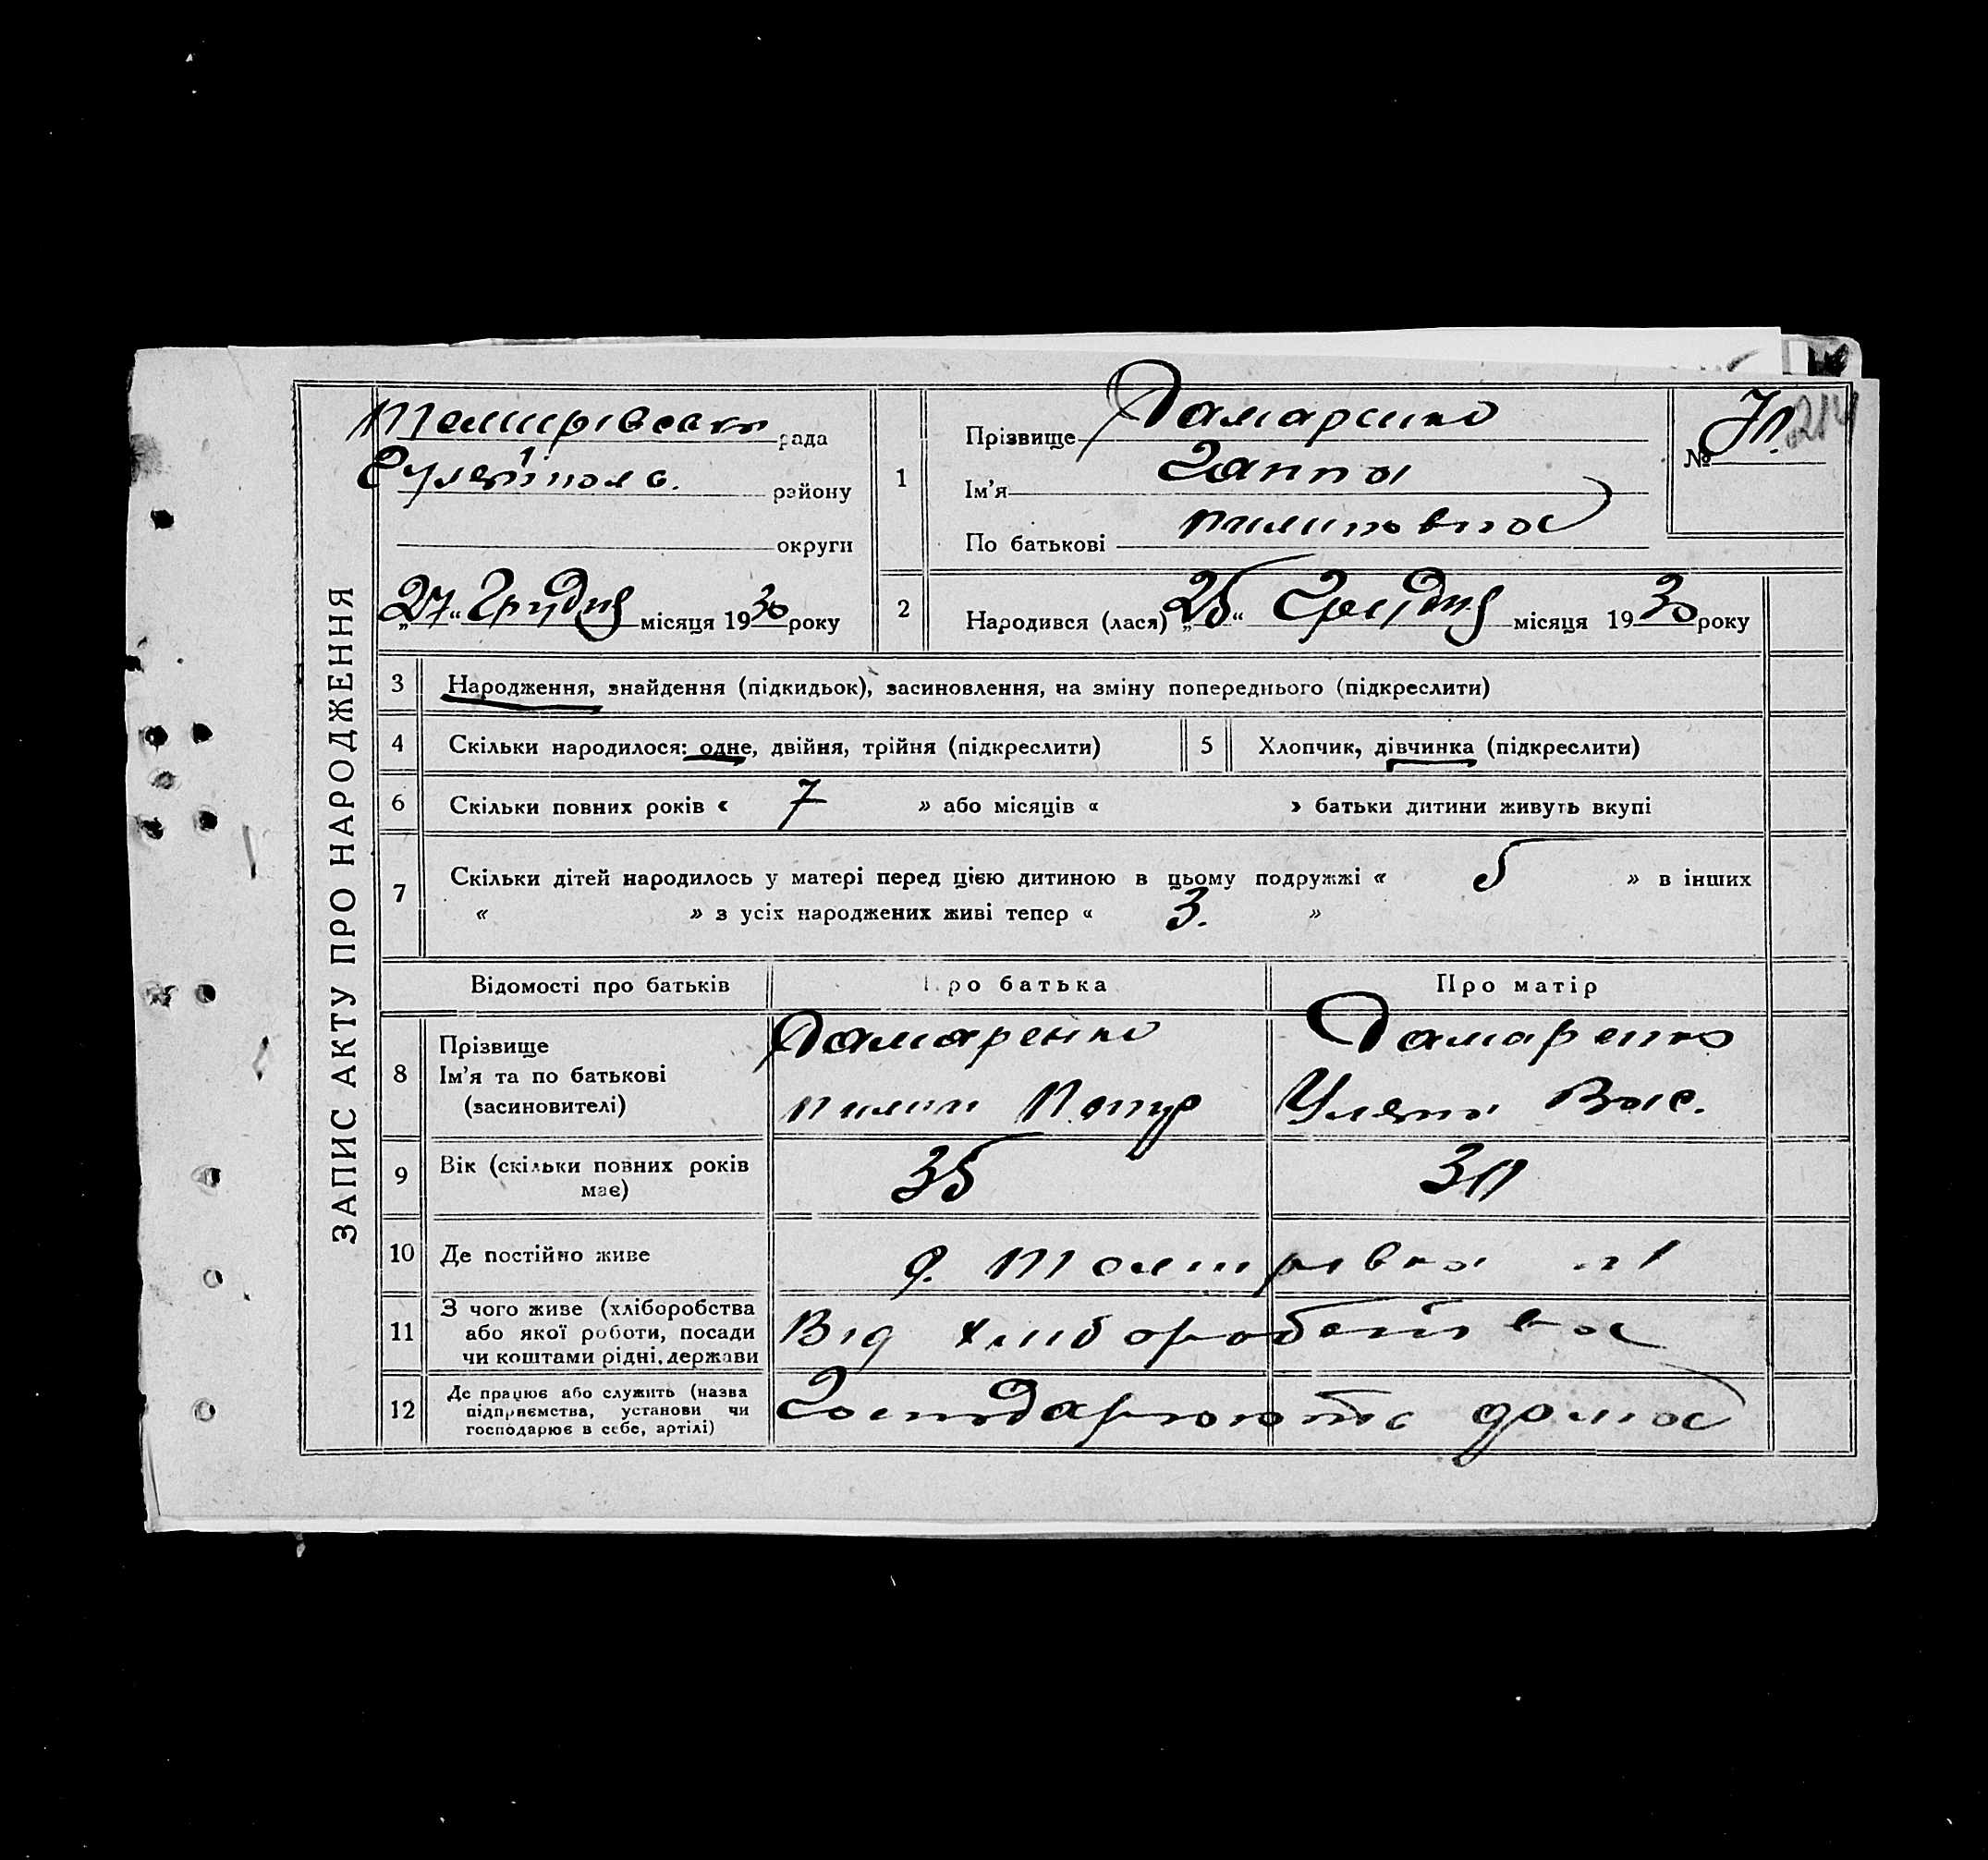 ЗАПИС АКТУ ПРО НАРОДЖЕННЯ
рада
району
округи
„27“ Грудня місяця 1930 року
1
Прізвище Дамаренко
Ім'я Ганна
По батькові Пилиповна
№
214
2
Народився (лася) „25“ Грудня місяця 1930 року
3 Народження, знайдення (підкидьок), засиновлення, на зміну попереднього (підкреслити)
4 Скільки народилося: одне, двійня, трійня (підкреслити) 5 Хлопчик, дівчинка (підкреслити)
6 Скільки повних років « 7 » або місяців « » батьки дитини живуть вкупі
7 Скільки дітей народилось у матері перед цією дитиною в цьому подружжі « 5 » в інших
« » з усіх народжених живі тепер « 3. »
Відомості про батьків Про батька Про матір
8 Прізвище Дамаренко Дамаренко
Ім'я та по батькові
(засиновителі) Пилип Петр Уляна Вас.
9 Вік (скільки повних років
має) 35
10 Де постійно живе
11 З чого живе (хліборобства
або якої роботи, посади
чи коштами рідні, держави Від хліборобства
12 Де працює або служить (назва
підприємства, установи чи
господарює в себе, артілі) Господарюють дома